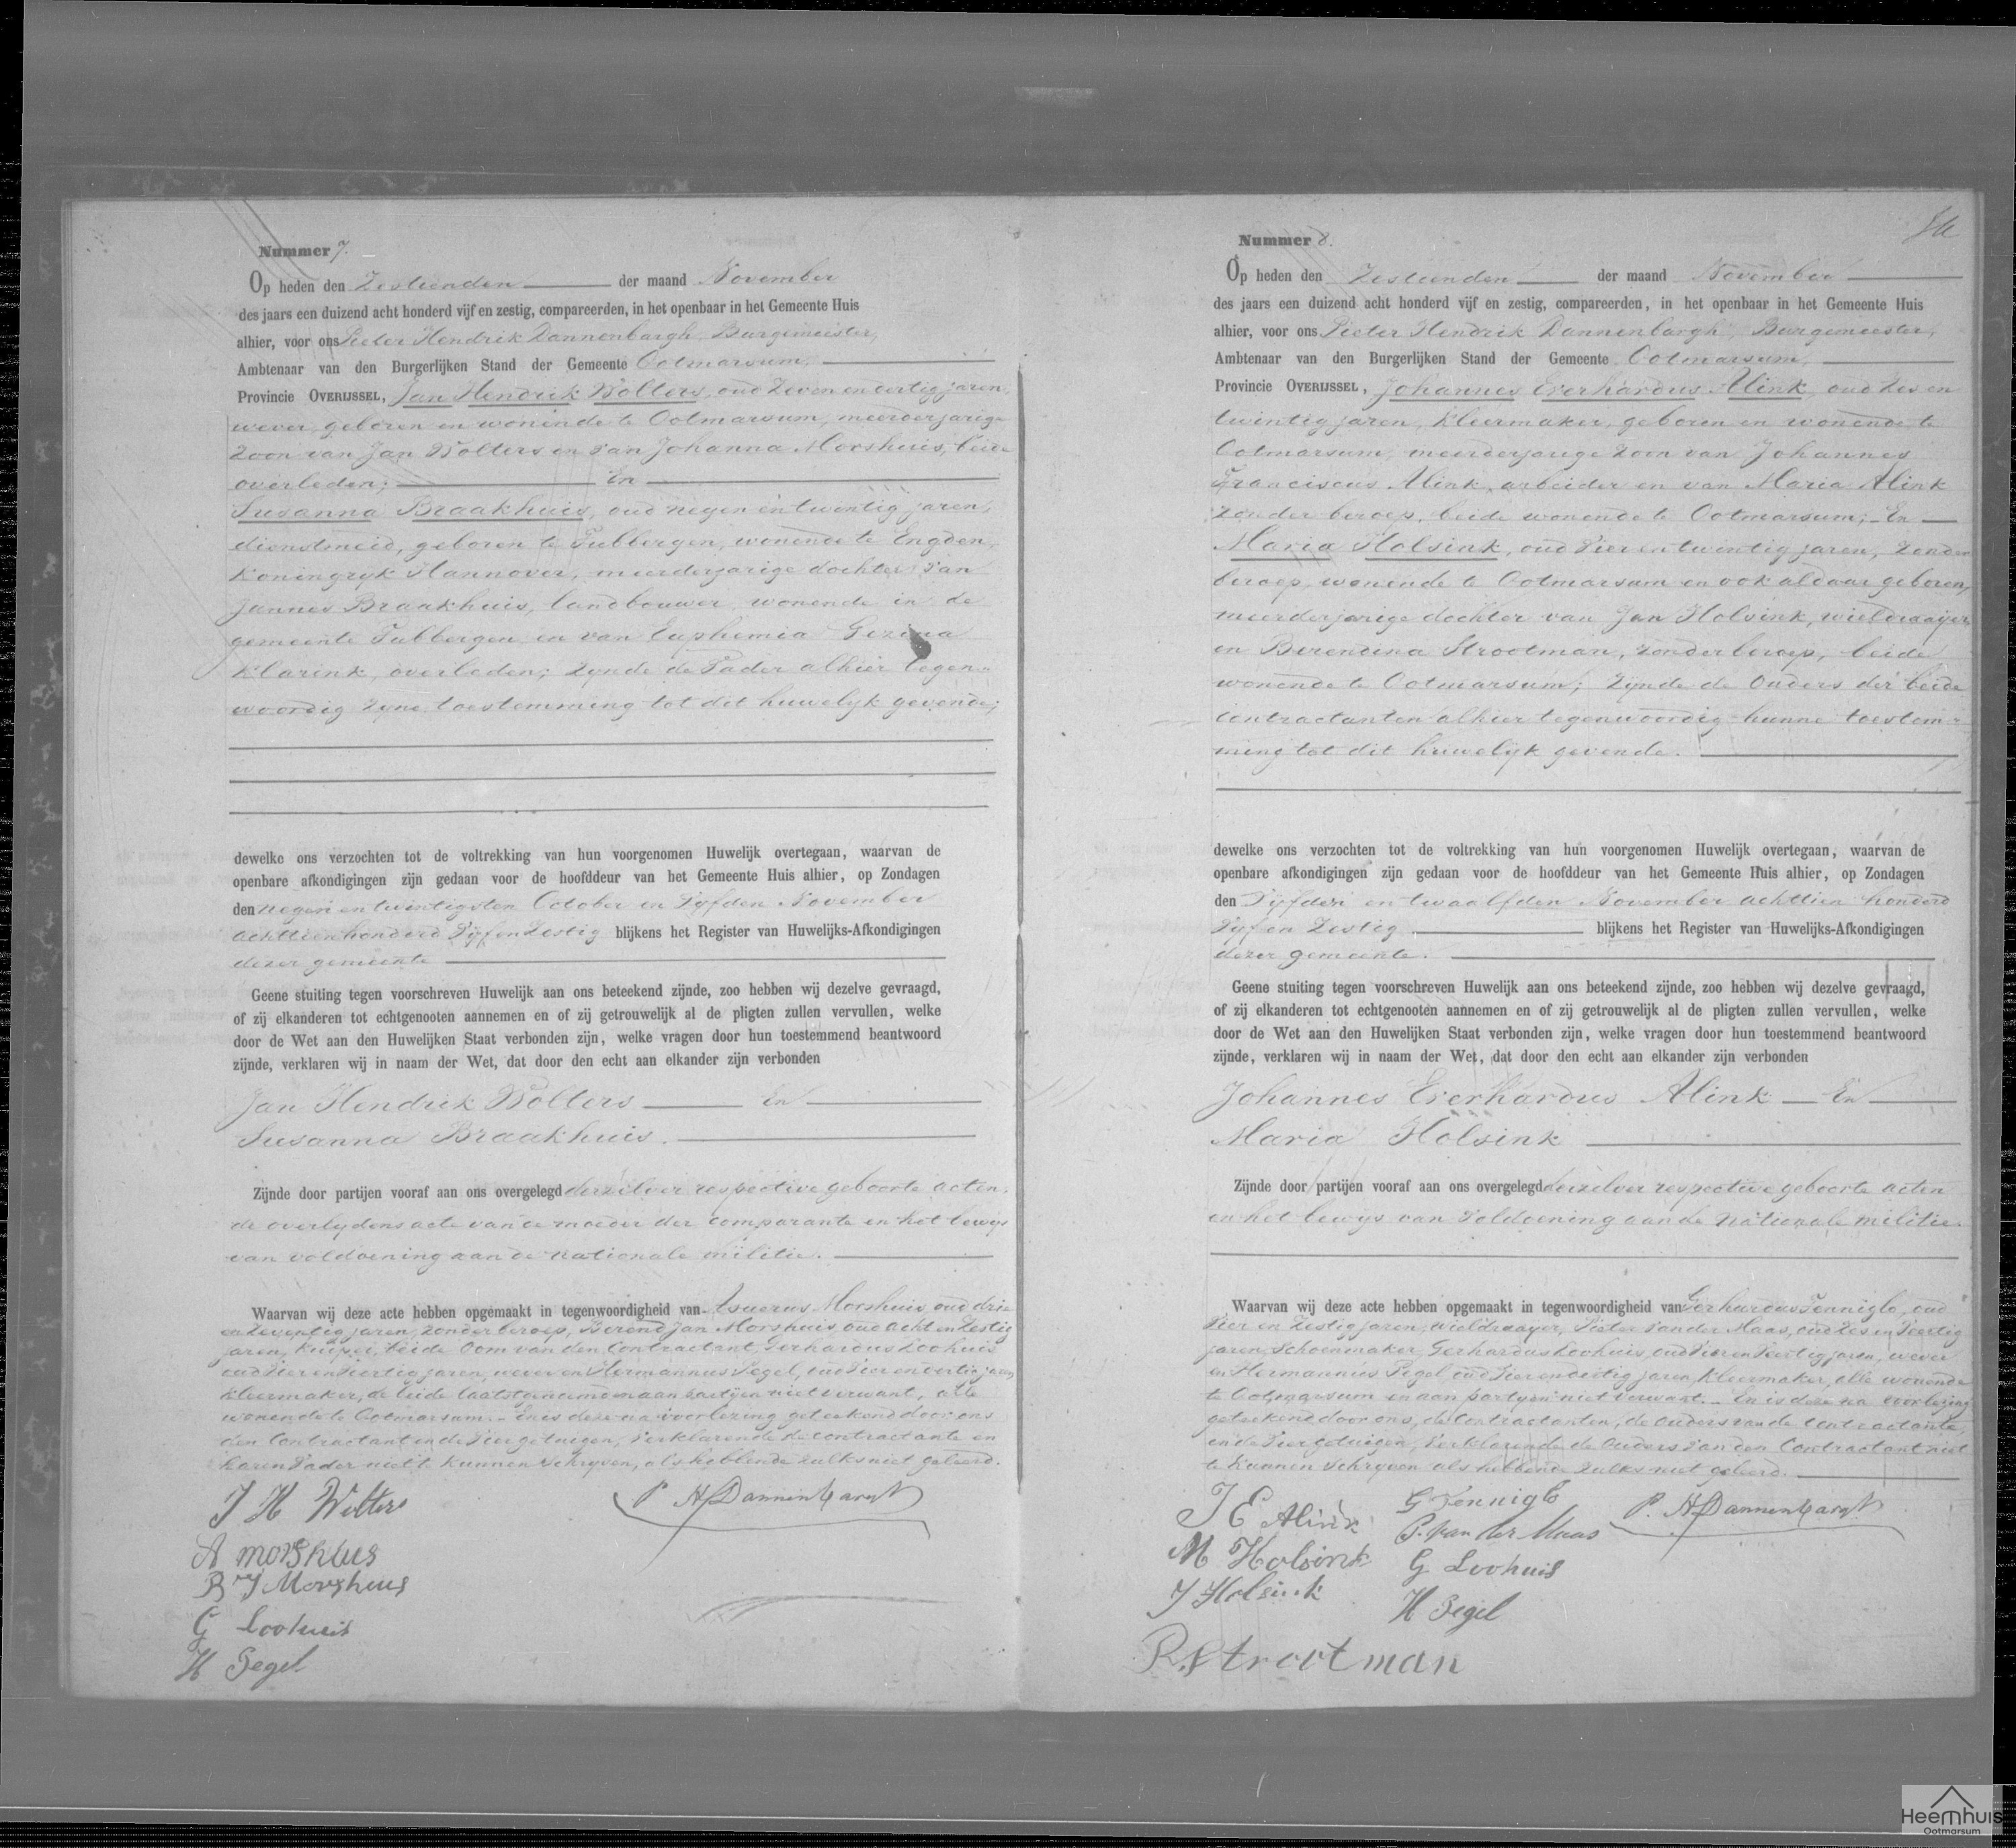 Nummer 7.
Op heden den Zestienden der maand November
des jaars een duizend acht honderd vijf en zestig, compareerden, in het openbaar in het Gemeente Huis
alhier, voor ons Pieter Hendrik Dannenbargh, Burgemeester,
Ambtenaar van den Burgerlijken Stand der Gemeente Ootmarsum,
Provincie OVERIJSSEL, Jan Hendrik Wolters, oud Zeven en dertig jaren,
wever, geboren en woninde te Ootmarsum, meerderjarige
Zoon van Jan Wolters en van Johanna Morshuis, beide
overleden; En
Susanna Braakhuis, oud negen en twintig jaren,
dienstmeid, geboren te Tubbergen, wonende te Engden,
Koningryk Hannover, meerderjarige dochter van
Jannes Braakhuis, landbouwer, wonende in de
gemeente Tubbergen en van Euphemia Gezina
Klarink, overleden; zynde de Vader alhier tegen-
woordig zyne toestemming tot dit huwelyk gevende;
dewelke ons verzochten tot de voltrekking van hun voorgenomen Huwelijk overtegaan, waarvan de
openbare afkondigingen zijn gedaan voor de hoofddeur van het Gemeente Huis alhier, op Zondagen
den negen en twintigsten October en Vyfden November
achttienhonderd Vyf en Zestig blijkens het Register van Huwelijks-Afkondigingen
dezer gemeente
Geene stuiting tegen voorschreven Huwelijk aan ons beteekend zijnde, zoo hebben wij dezelve gevraagd,
of zij elkanderen tot echtgenooten aannemen en of zij getrouwelijk al de pligten zullen vervullen, welke
door de Wet aan den Huwelijken Staat verbonden zijn, welke vragen door hun toestemmend beantwoord
zijnde, verklaren wij in naam der Wet, dat door den echt aan elkander zijn verbonden
Jan Hendrik Wolters En
Susanna Braakhuis.
Zijnde door partijen vooraf aan ons overgelegd derzelver respective geboorte acten,
de overlydens acte van de moeder der Comparante en het bewys
van voldoening aan de nationale militie.
Waarvan wij deze acte hebben opgemaakt in tegenwoordigheid van Asuerus Morshuis, oud drie
en Zeventig jaren, zonder beroep, Berend Jan Morshuis, oud acht en Zestig
jaren, Kuiper, beide Oom van den Contractant, Gerhardus Loohuis
oud Vier en Veertig jaren, wever en Hermannus Pegel, oud Vier en dertig jaren
Kleermaker, de beide laatstgenoemden aan partyen niet verwant, alle
wonende te Ootmarsum. En is deze na voorlezing geteekend door ons
den Contractant en de Vier getuigen, Verklarende de Contractante en
haren Vader niet te kunnen schryven, als hebbende zulks niet geleerd.
J H Wolters
P H Dannenbargh
A morshuis
B J Morshuis
G Loohuis
H Pegel
Nummer 8.
Op heden den Zestienden der maand November
des jaars een duizend acht honderd vijf en zestig, compareerden, in het openbaar in het Gemeente Huis
alhier, voor ons Pieter Hendrik Dannenbargh, Burgemeester,
Ambtenaar van den Burgerlijken Stand der Gemeente Ootmarsum,
Provincie OVERIJSSEL, Johannes Everhardus Alink, oud Zes en
twintig jaren, Kleermaker, geboren en wonende te
Ootmarsum, meerderjarige zoon van Johannes
Franciscus Alink, arbeider en van Maria Alink
zonder beroep, beide wonende te Ootmarsum; En
Maria Holsink, oud Vier en twintig jaren, zonder
beroep, wonende te Ootmarsum en ook aldaar geboren,
meerderjarige dochter van Jan Holsink, wieldraayer
en Berendina Strootman, zonder beroep, beide
wonende te Ootmarsum; zynde de Ouders der beide
Contractanten alhier tegenwoordig hunne toestem-
ming tot dit huwelyk gevende.
dewelke ons verzochten tot de voltrekking van hun voorgenomen Huwelijk overtegaan, waarvan de
openbare afkondigingen zijn gedaan voor de hoofddeur van het Gemeente Huis alhier, op Zondagen
den Vyfden en twaalfden November achttien honderd
Vyf en Zestig blijkens het Register van Huwelijks-Afkondigingen
dezer gemeente.
Geene stuiting tegen voorschreven Huwelijk aan ons beteekend zijnde, zoo hebben wij dezelve gevraagd,
of zij elkanderen tot echtgenooten aannemen en of zij getrouwelijk al de pligten zullen vervullen, welke
door de Wet aan den Huwelijken Staat verbonden zijn, welke vragen door hun toestemmend beantwoord
zijnde, verklaren wij in naam der Wet, dat door den echt aan elkander zijn verbonden
Johannes Everhardus Alink En
Maria Holsink
Zijnde door partijen vooraf aan ons overgelegd derzelver respective geboorte acten
en het bewys van Voldoening aan de nationale militie.
Waarvan wij deze acte hebben opgemaakt in tegenwoordigheid van Gerhardus Fenniglo, oud
Vier en Zestig jaren, wieldraayer, Pieter van der Maas, oud Zes en Veertig
jaren, Schoenmaker, Gerhardus Loohuis, oud Vier en Veertig jaren, wever
en Hermannus Pegel, oud Vier en dertig jaren, Kleermaker, alle wonende
te Ootmarsum en aan partyen niet verwant. En is deze na voorlezing
geteekend door ons, de Contractanten, de Ouders van de Contractante,
en de Vier getuigen, Verklarende de Ouders van den Contractant niet
te kunnen schryven als hebbende zulks niet geleerd.
J E Alink
G Fenniglo
P. H Dannenbargh
M Holsink
P. van der Maas
J Holsink
G Loohuis
H Pegel
B. Strootman
Heemhuis
Ootmarsum